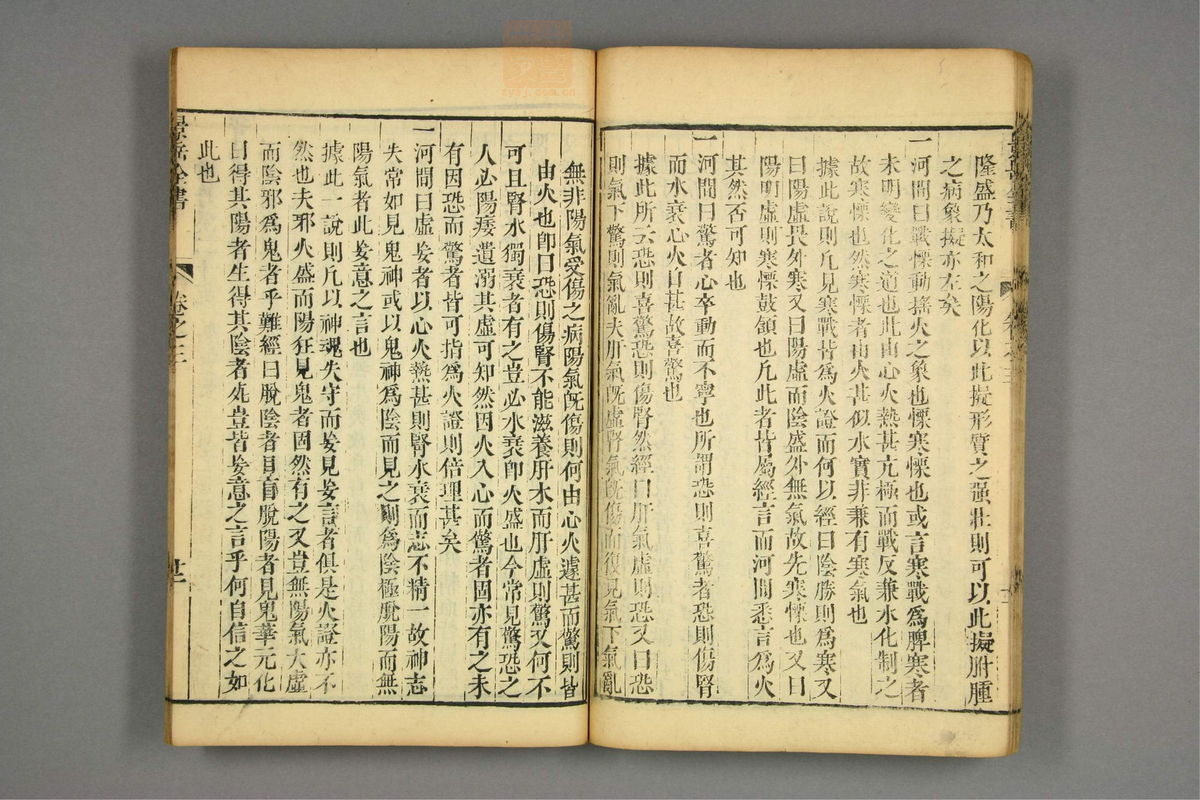 隆盛乃太和之陽化以此擬形質之强壯則可以此擬胕腫
之病象擬亦左矣
一河間曰戰慄動搖火之象也慄寒慄也或言寒戰爲脾寒者
未明變化之道也此由心火熱甚亢極而戰反兼水化制之
故寒慄也然寒慄者由火甚似水實非兼有寒氣也
據此說則凡見寒戰皆爲火證而何以經曰陰勝則爲寒又
曰陽虛畏外寒又曰陽虛而陰盛外無氣故先寒慄也又曰
陽明虛則寒慄鼓頷也凡此者皆屬經言而河間悉言爲火
其然否可知也
一河間曰驚者心卒動而不寧也所謂恐則喜驚者恐則傷腎
而水衰心火自甚故喜驚也
據此所云恐則喜驚恐則傷腎然經曰肝氣虛則恐又曰恐
則氣下驚則氣亂夫肝氣旣虛腎氣旣傷而復見氣下氣亂
無非陽氣受傷之病陽氣旣傷則何由心火遽甚而驚則皆
由火也卽曰恐則傷腎不能滋養肝木而肝虛則驚又何不
可且腎水獨衰者有之豈必水衰卽火盛也今常見驚恐之
人必陽痿遺溺其虛可知然因火入心而驚者固亦有之未
有因恐而驚者皆可指爲火證則倍理甚矣
一河間曰虛妄者以心火熱甚則腎水衰而志不精一故神志
失常如見鬼神或以鬼神爲陰而見之則爲陰極脫陽而無
陽氣者此妄意之言也
據此一說則凡以神魂失守而妄見妄言者俱是火證亦不
然也夫邪火盛而陽狂見鬼者固然有之又豈無陽氣大虛
而陰邪爲鬼者乎難經曰脫陰者目盲脫陽者見鬼華元化
曰得其陽者生得其陰者死豈皆妄意之言乎何自信之如
此也
景岳全書
卷之三
廿一